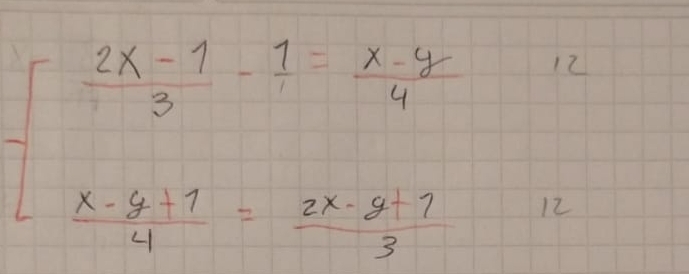 (2x - 1)/3 - 1/1 = (x - y)/4 12
(x - y + 1)/4 = (2x - y + 1)/3 12